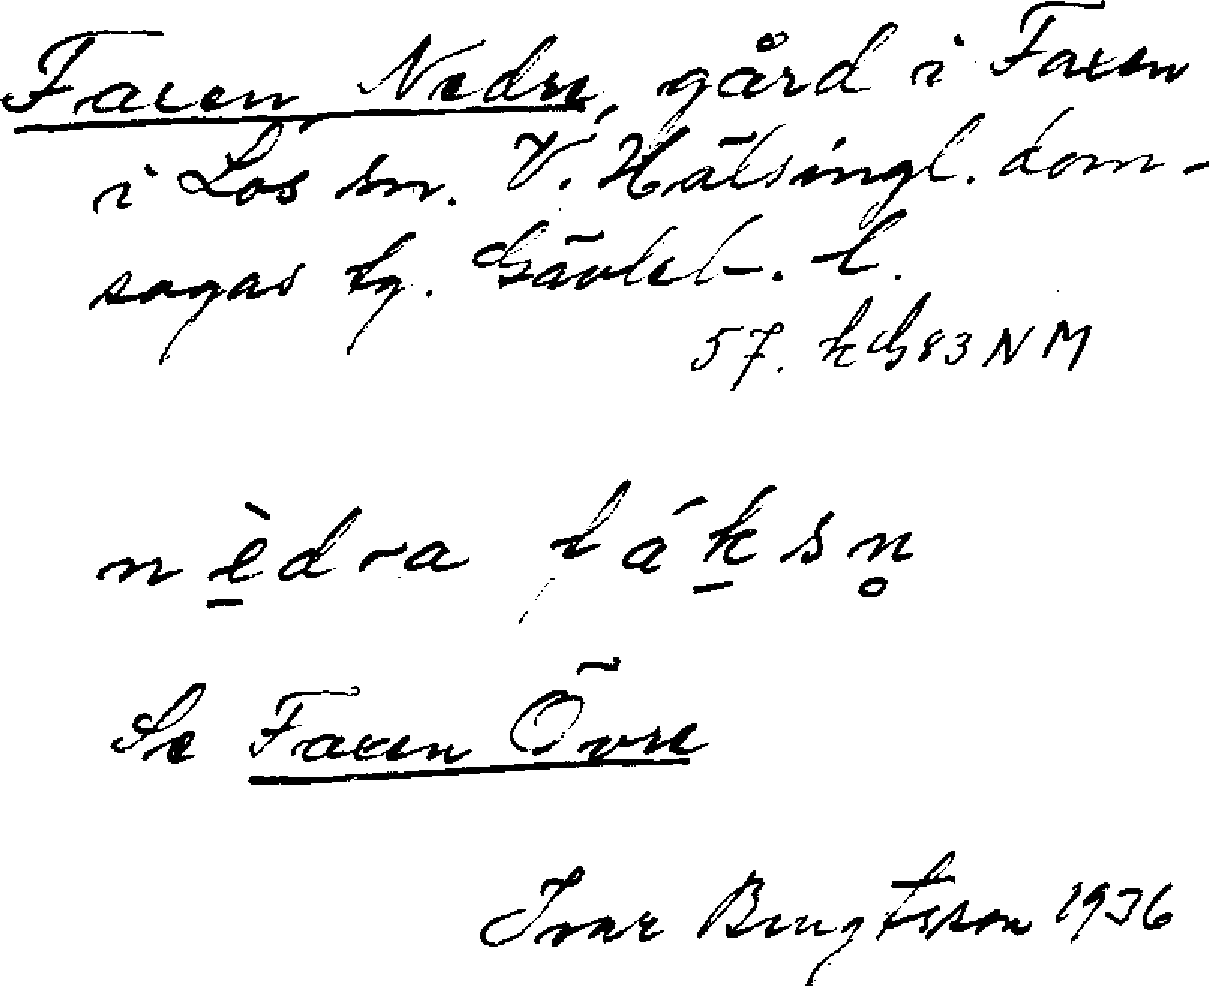 Faxen Nedre, gård i Faxen
i Los sn. V. Hälsingl. dom-
sagas tg. Gävleb. l.
57. kG83NM
nè̱dra fáḵsn̥
Se Faxen Övre
Ivar Bengtsson 1936